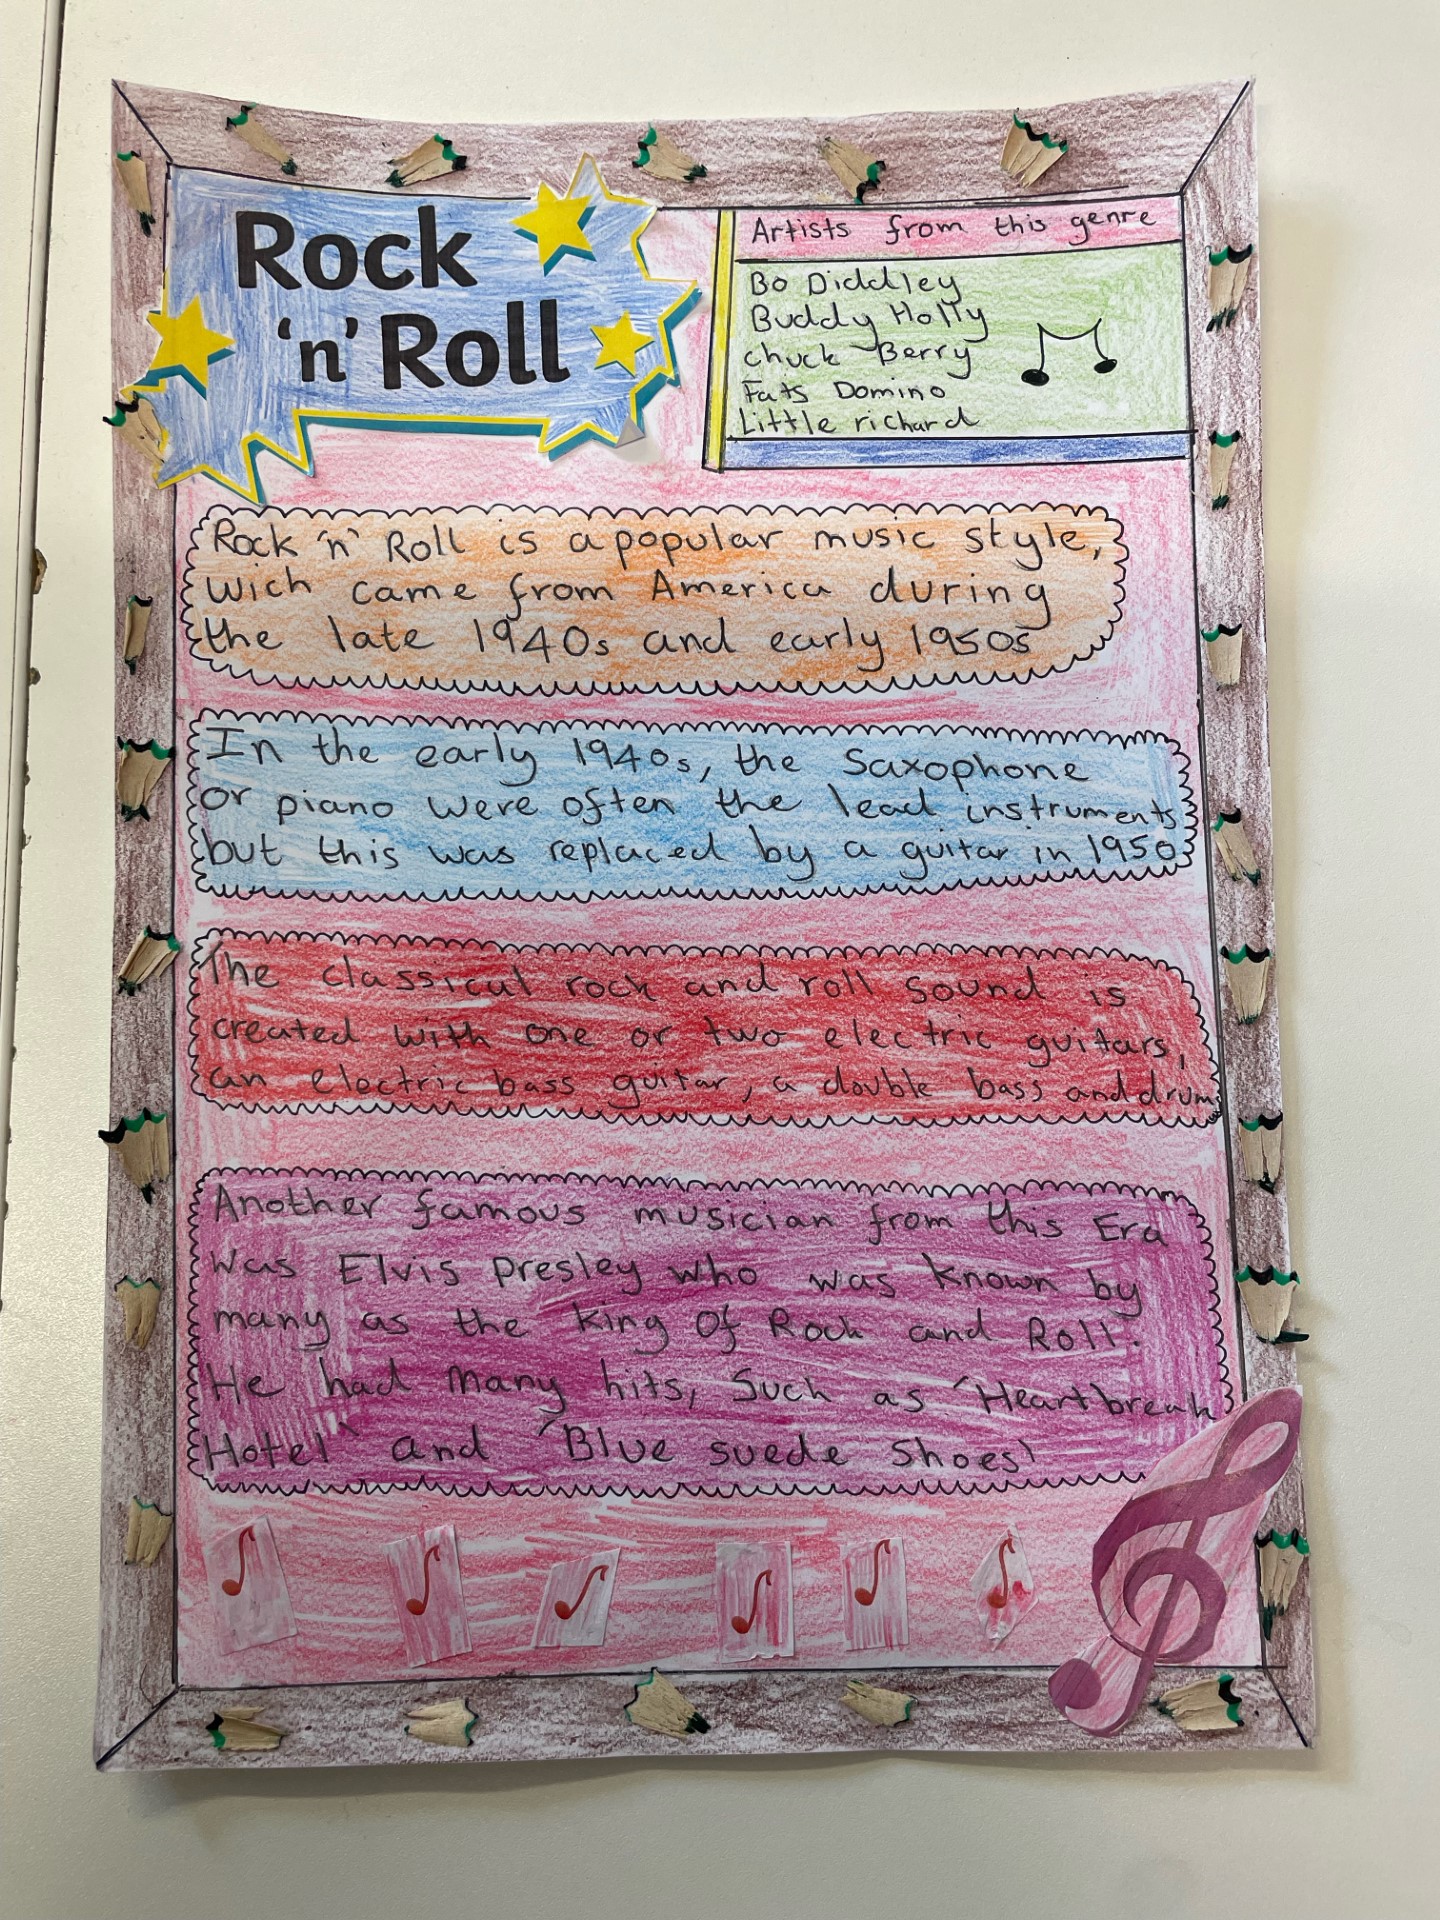 Rock
'n' Roll
Artists from this genre
Bo Diddley
Buddy Holly
chuck Berry
Fats Domino
Little richard
Rock 'n' Roll is a popular music style,
wich came from America during
the late 1940s and early 1950s
In the early 1940s, the Saxophone
or piano were often the lead instruments
but this was replaced by a guitar in 1950
The classical rock and roll sound is
created with one or two electric guitars,
an electric bass guitar, a double bass and drums
Another famous musician from this Era
was Elvis presley who was known by
many as the king Of Rock and Roll.
He had many hits, Such as 'Heartbreak
Hotel' and 'Blue suede Shoes'